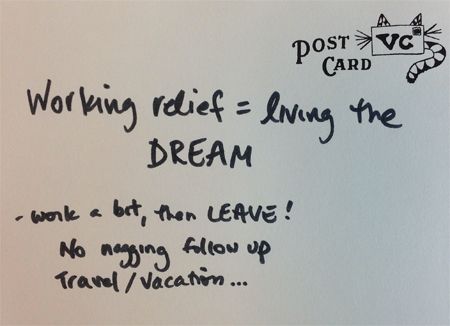 POST CARD
VC
Working relief = living the
DREAM
- work a bit, then LEAVE!
No nagging follow up
Travel/Vacation...